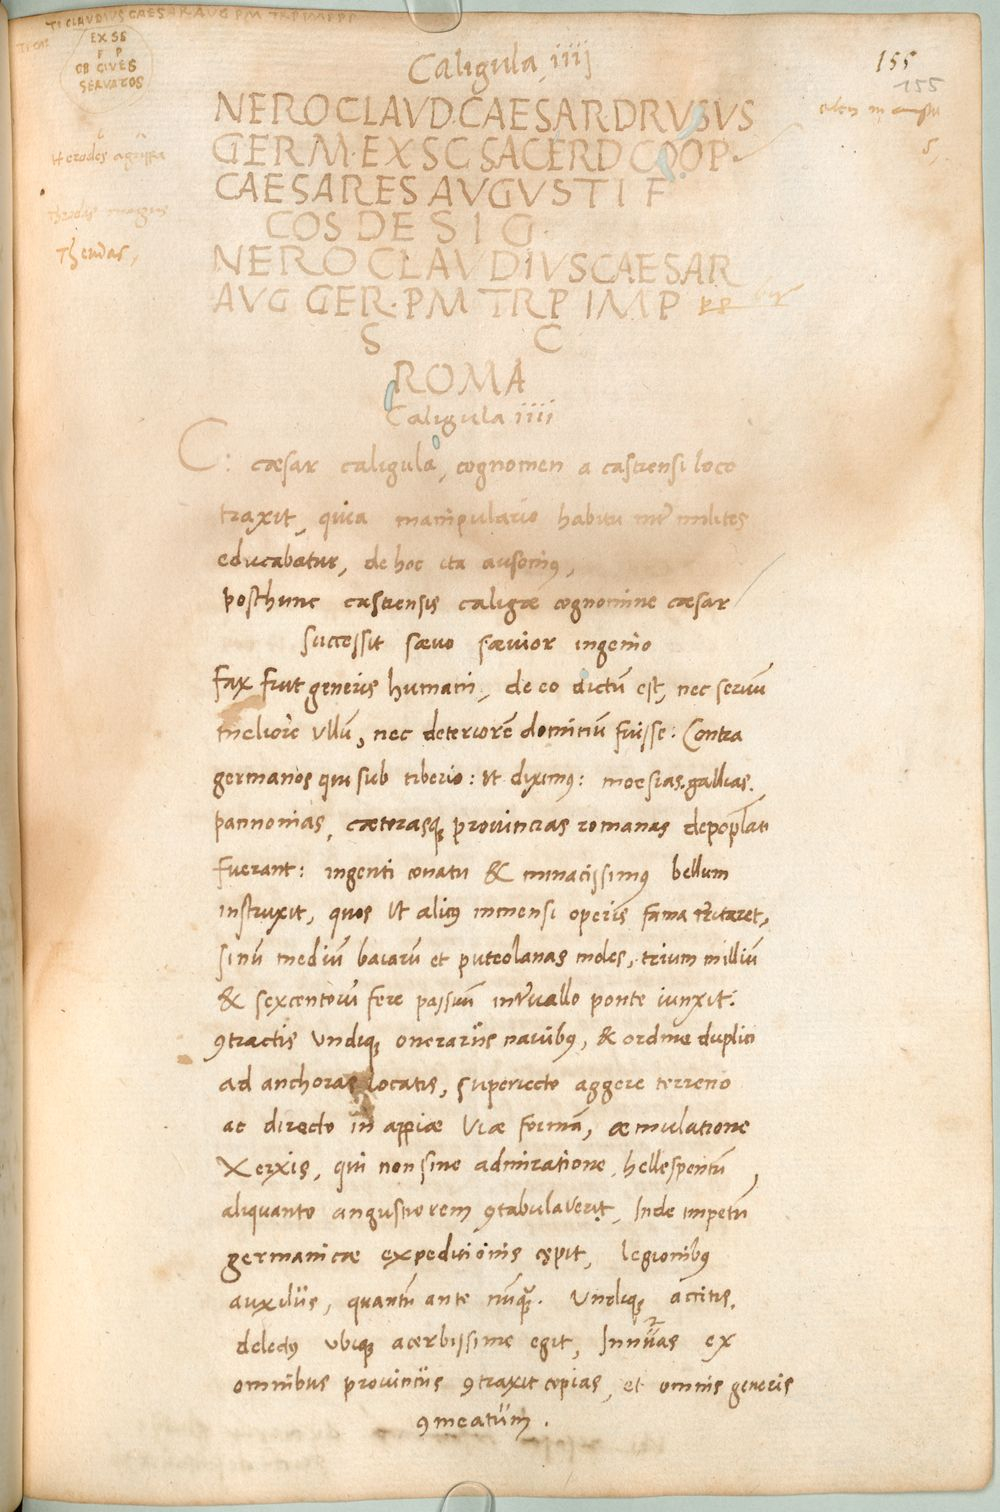 TI CLAUDIUS CAESAR AVG PM TRP IMP PP
EX SS
F P
OB CIVES
SERVATOS
Caligula iiij
155
155
NERO CLAVD.CAESAR.DRVSVS
GERM.EX SC SACERD COOP.
CAESARES AVGVSTI F
COS DESIG.
NERO CLAVDIVS CAESAR
AVG GER.PM TRP IMP PP
S C
ROMA
Herodes agrippa
Herodes magnus
Theudas,
Caligula iiii
C: cæsar caligula, cognomen a castrensi loco
traxit, quia manipulario habitu int̃ milites
educabatur, de hoc ita ausoniꝰ,
posthunc castrensis caligæ cognomine cæsar
Successit sævo sævior ingenio
Fax fuit generis humani, de eo dictũ est, nec seruũ
meliorẽ vllũ, nec deteriorẽ dominũ fuisse: Contra
germanos qui sub tiberio: Ut diximꝰ: moesias.gallias.
pannonias, cæterasqꝫ prouincias romanas depoplati
fuerant: ingenti conatu & minacissimꝰ bellum
instruxit, quos Ut alicꝰ immensi operis fama t̃ritaret,
sinũ mediũ baiarũ et puteolanas moles, trium milliũ
& sexcentorũ fere passuũ int̃uallo ponte iunxit:
ꝯtractis Undiqꝫ onerariis nauibꝰ, & ordine duplici
ad anchoras locatis, superiecto aggere terreno
ac directo in appiæ Viæ formã, æmulatione
Xerxis, qui non sine admiratione, hellespontũ
aliquanto angustiorem ꝯtabulaverit, Inde impetũ
germanicæ expeditionis cępit, legionibꝰ
auxiliis, quantũ ante nũqꝫ. Undiqꝫ accitis,
delectꝰ ubiqꝫ acerbissime egit,
omnibus prouinciis ꝯtraxit copias, et omnis generis
ꝯmeatũm.